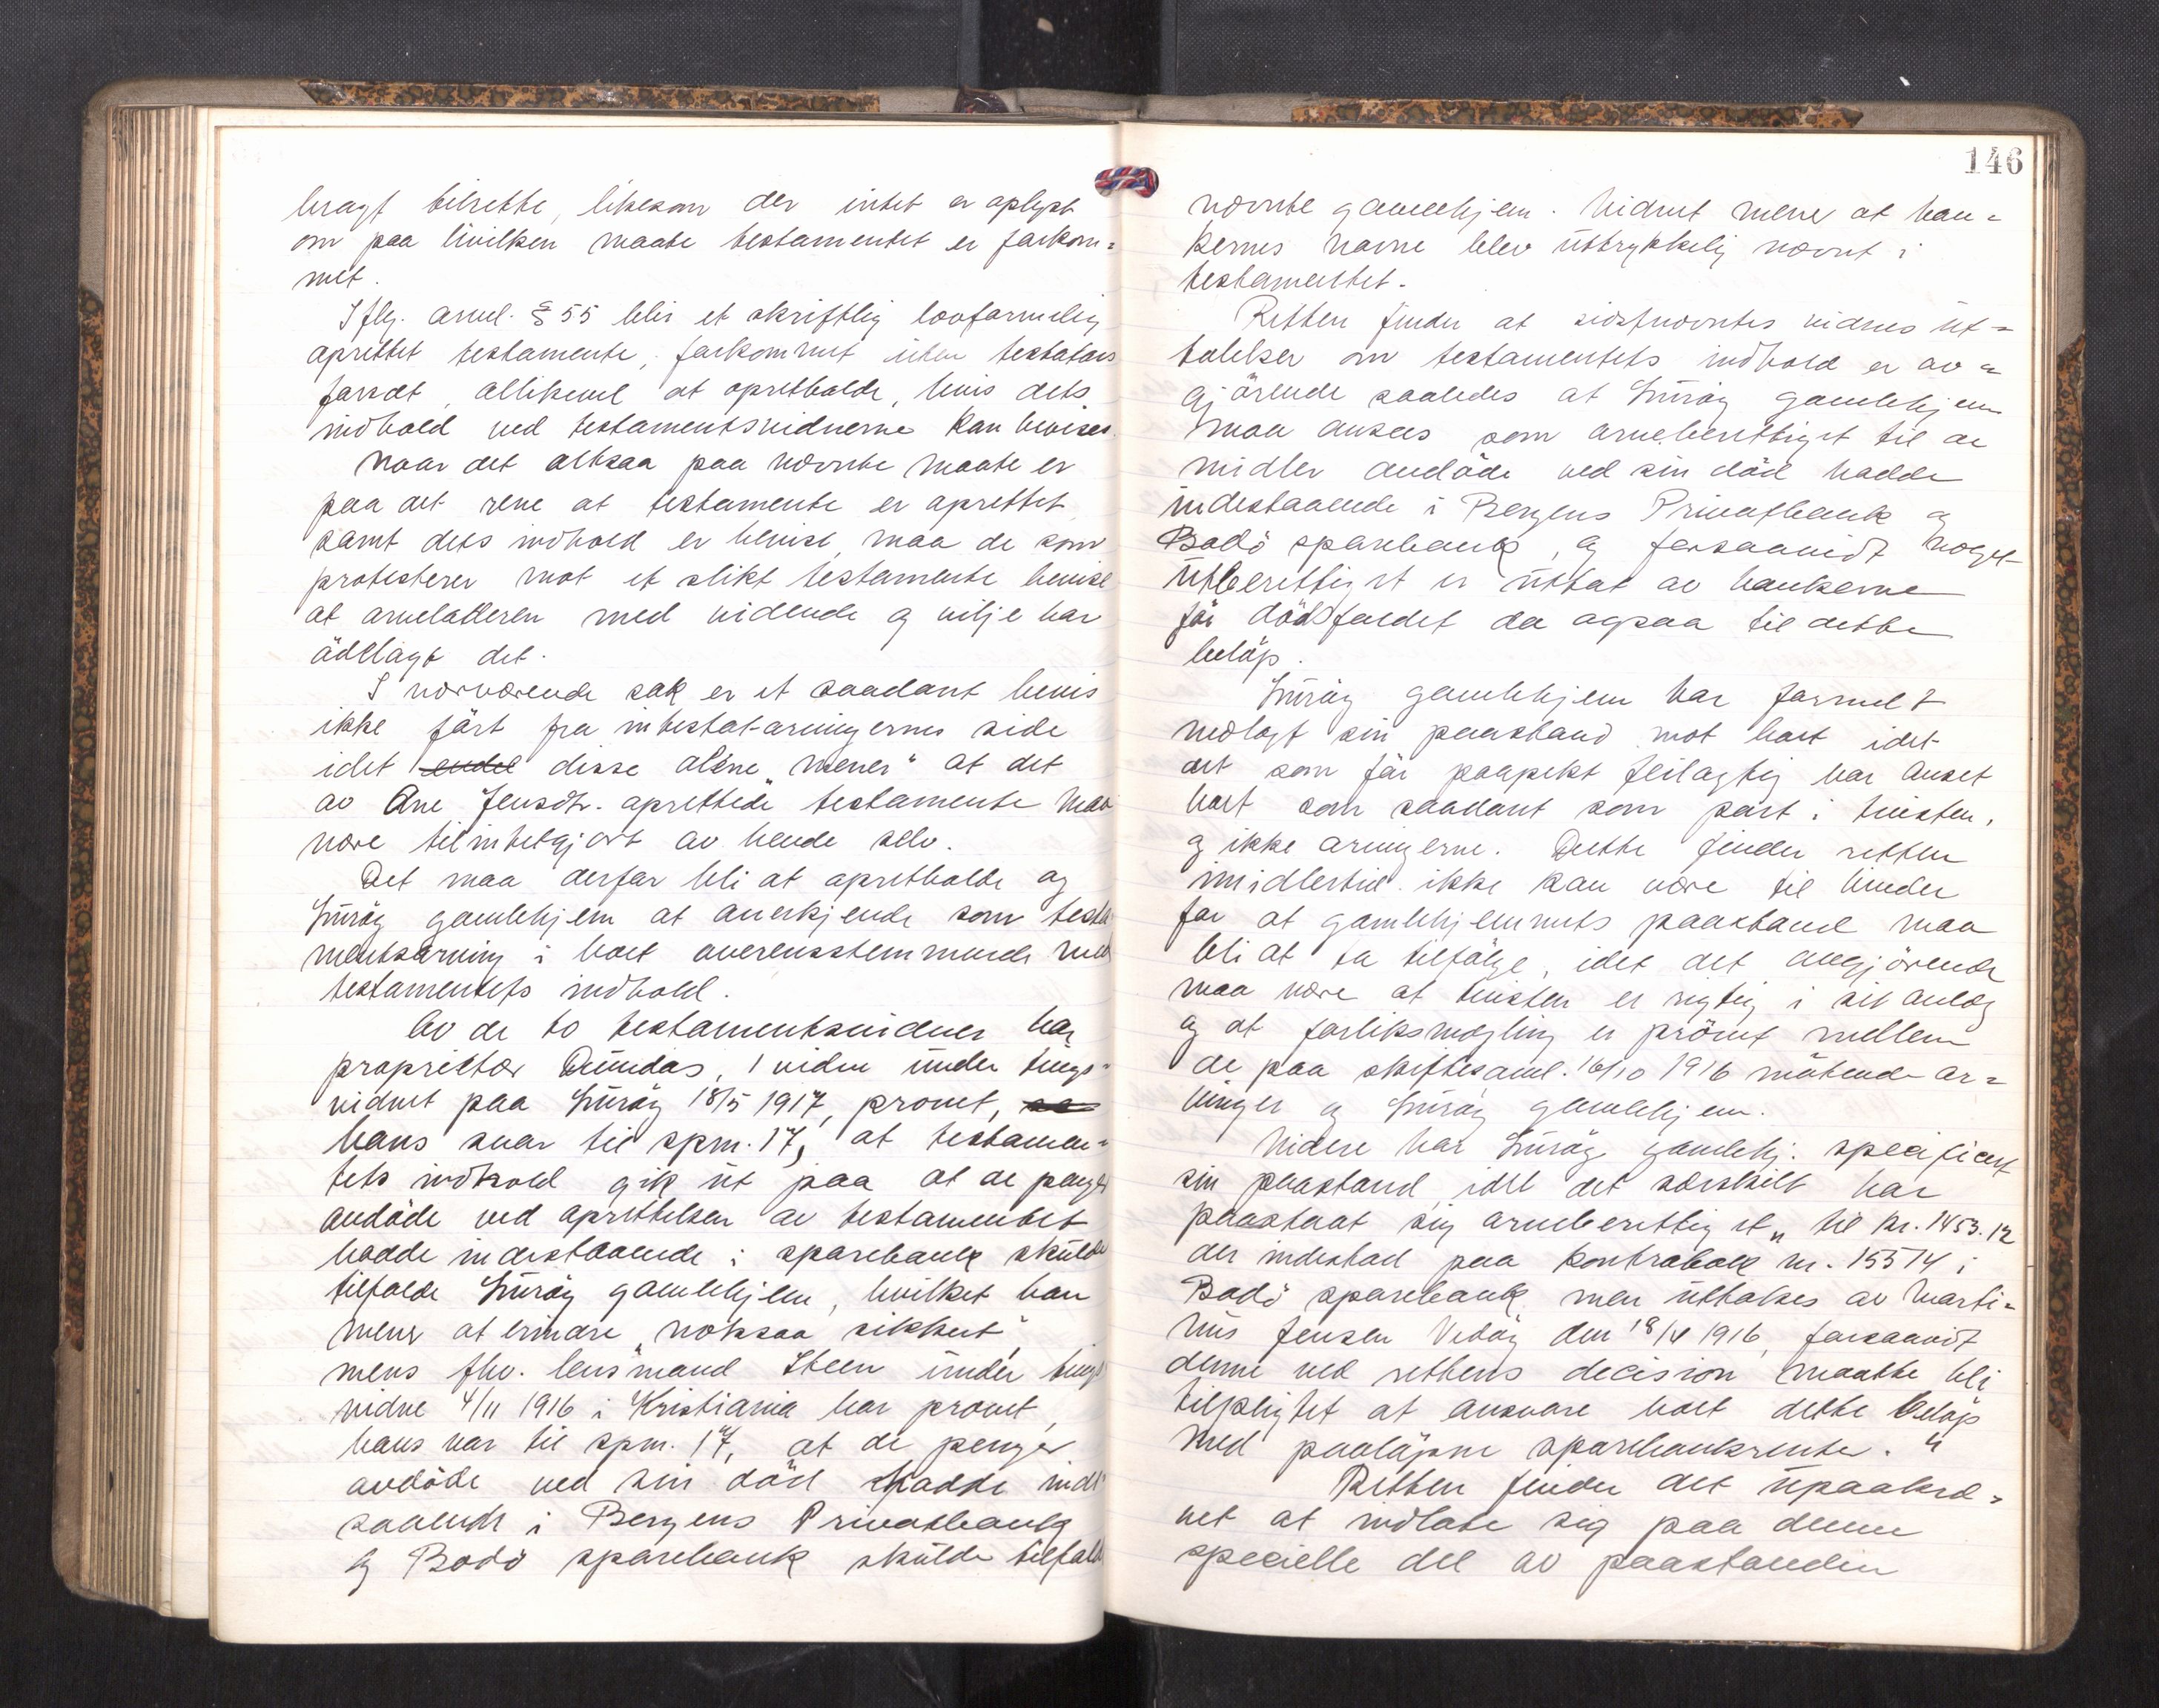 bragt tilrette, likesom der intet er oplyst
om paa hvilken maate testamentet er forkom=
met.
Iflg. arvel. § 55 blir et skriftlig lovformelig
oprettet testamente, forkommet uten testators
forsæt, allikevel at opretholde, hvis dets
indhold ved testamentsvidnerne kan bevises.
Naar det altsaa paa nævnte maate er
paa det rene at testamente er oprettet
samt dets indhold er bevist, maa de som
protesterer mot et slikt testamente bevise
at arveladeren med vidende og vilje har
ödelagt det.
I nærværende sak er et saadant bevis
ikke fört fra intestat-arvingernes side
idet disse alene "mener" at det
av Ane Jensdtr. oprettede testamente maa
være tilintetgjort av hende selv.
Det maa derfor bli at opretholde og
Luröy gamlehjem at anerkjende som testa
mentsarving i boet overensstemmende med
testamentets indhold.
Av de to testamentsvidner har
proprietær Dundas, 1 vidne under tings=
vidnet paa Luröy 18/5 1917, provet,
hans svar til spm. 17, at testamen=
tets indhold gik ut paa at de penger
avdöde ved oprettelsen av testamentet
hadde indestaaende i sparebank skulde
tilfalde Luröy gamlehjem, hvilket han
mener at erindre "noksaa sikkert",
mens fhv. lensmand Steen under tings
vidne 4/11 1916 i Kristiania har provet,
hans svar til spm. 17, at de penger
avdöde ved sin död hadde inde
staaende i Bergens Privatbank
og Bodö sparebank skulde tilfalde
146
nævnte gamlehjem. Vidnet mener at ban=
kernes navne blev uttrykkelig nævnt i
testamentet.
Retten finder at sidstnævntes vidnes ut=
talelser om testamentets indhold er av=
gjörende saaledes at Luröy gamlehjem
maa ansees som arveberettiget til de
midler avdöde ved sin död hadde
indestaaende i Bergens Privatbank og
Bodö sparebank, og forsaavidt noget
uberettiget er uttat av bankerne
för dödsfaldet da ogsaa til dette
belöp.
Luröy gamlehjem har formelt
nedlagt sin paastand mot boet idet
det som för paapekt feilagtig har anset
boet som saadant som part i tvisten,
og ikke arvingerne. Dette finder retten
imidlertid ikke kan være til hinder
for at gamlehjemmets paastand maa
bli at ta tilfölge, idet det avgjörende
maa være at tvisten er rigtig i sit anlæg
og at forliksmægling er prövet mellem
de paa skiftesaml. 16/10 1916 mötende ar=
vinger og Luröy gamlehjem.
Videre har Luröy gamlehj. specificert
sin paastand, idet det særskilt har
paastaat sig arveberettiget "til kr. 1453.12
der indestod paa kontrabok nr. 15514 i
Bodö sparebank men uttokes av Marti=
nus Jensen Vedöy den 18/4 1916, forsaavidt
denne ved rettens decision maatte bli
tilpligtet at ansvare boet dette belöp
med paalöpne sparebankrente."
Retten finder det upaakræ=
vet at indlate sig paa denne
specielle del av paastanden